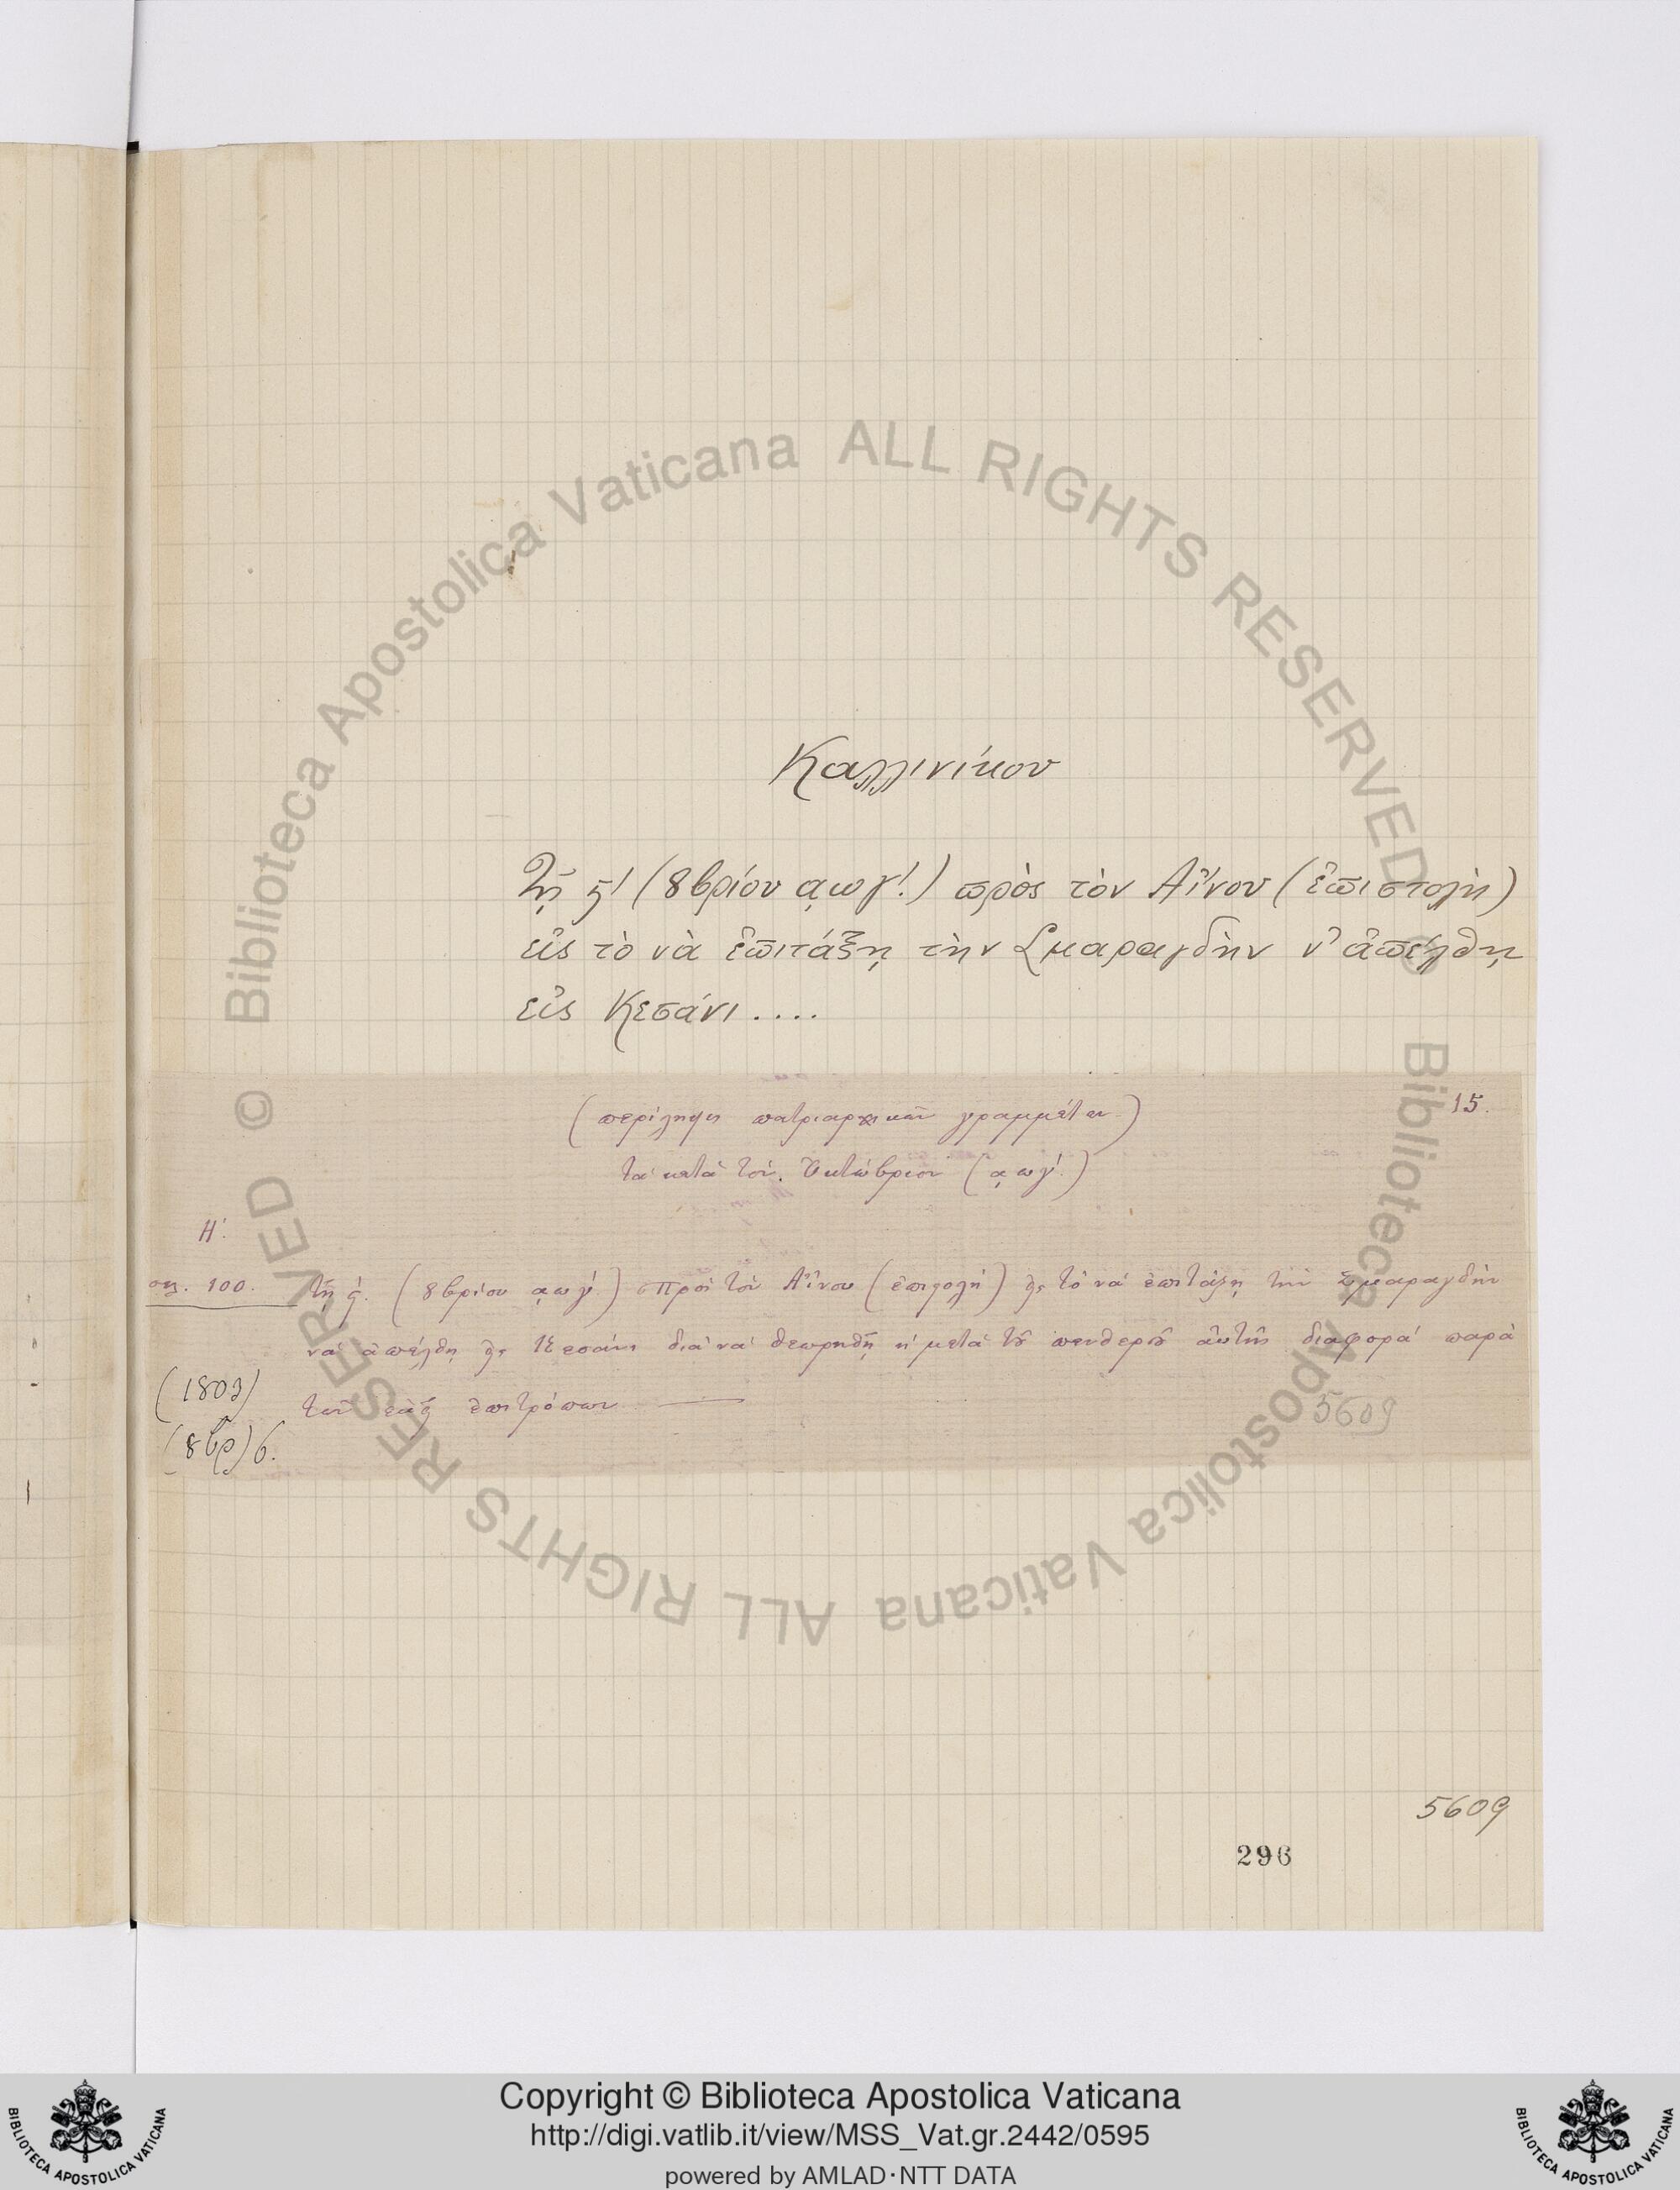 Καλλινίκου
Τῇ ς' (8βρίου ͵αωγ'.) πρὸς τὸν Αἴνου (ἐπιστολὴ)
εἰς τὸ νὰ ἐπιτάξῃ τὴν Σμαραγδὴν ν' ἀπέλθῃ
εἰς Κεσάνι....
15.
(περίληψις πατριαρχικῶν γραμμάτων)
τὰ κατὰ τὸν Ὀκτώβριον (͵αωγ'.)
Η'.
σελ. 100. τῇ ς'. (8βρίου ͵αωγ'.) πρὸς τὸν Αἴνου (ἐπιστολὴ) εἰς τὸ νὰ ἐπιτάξῃ τὴν Σμαραγδὴν
νὰ ἀπέλθῃ εἰς Κεσάνι διὰ νὰ θεωρηθῇ ἡ μετὰ τοῦ πενθεροῦ αὐτῆς διαφορὰ παρὰ
(1803) τῶν ἐπιτρόπων
(8βρ) 6.
5609
5609
296
© Biblioteca Apostolica Vaticana ALL RIGHTS RESERVED
© Biblioteca Apostolica Vaticana ALL RIGHTS RESERVED
BIBLIOTECA APOSTOLICA VATICANA
Copyright © Biblioteca Apostolica Vaticana
http://digi.vatlib.it/view/MSS_Vat.gr.2442/0595
powered by AMLAD·NTT DATA
BIBLIOTECA APOSTOLICA VATICANA